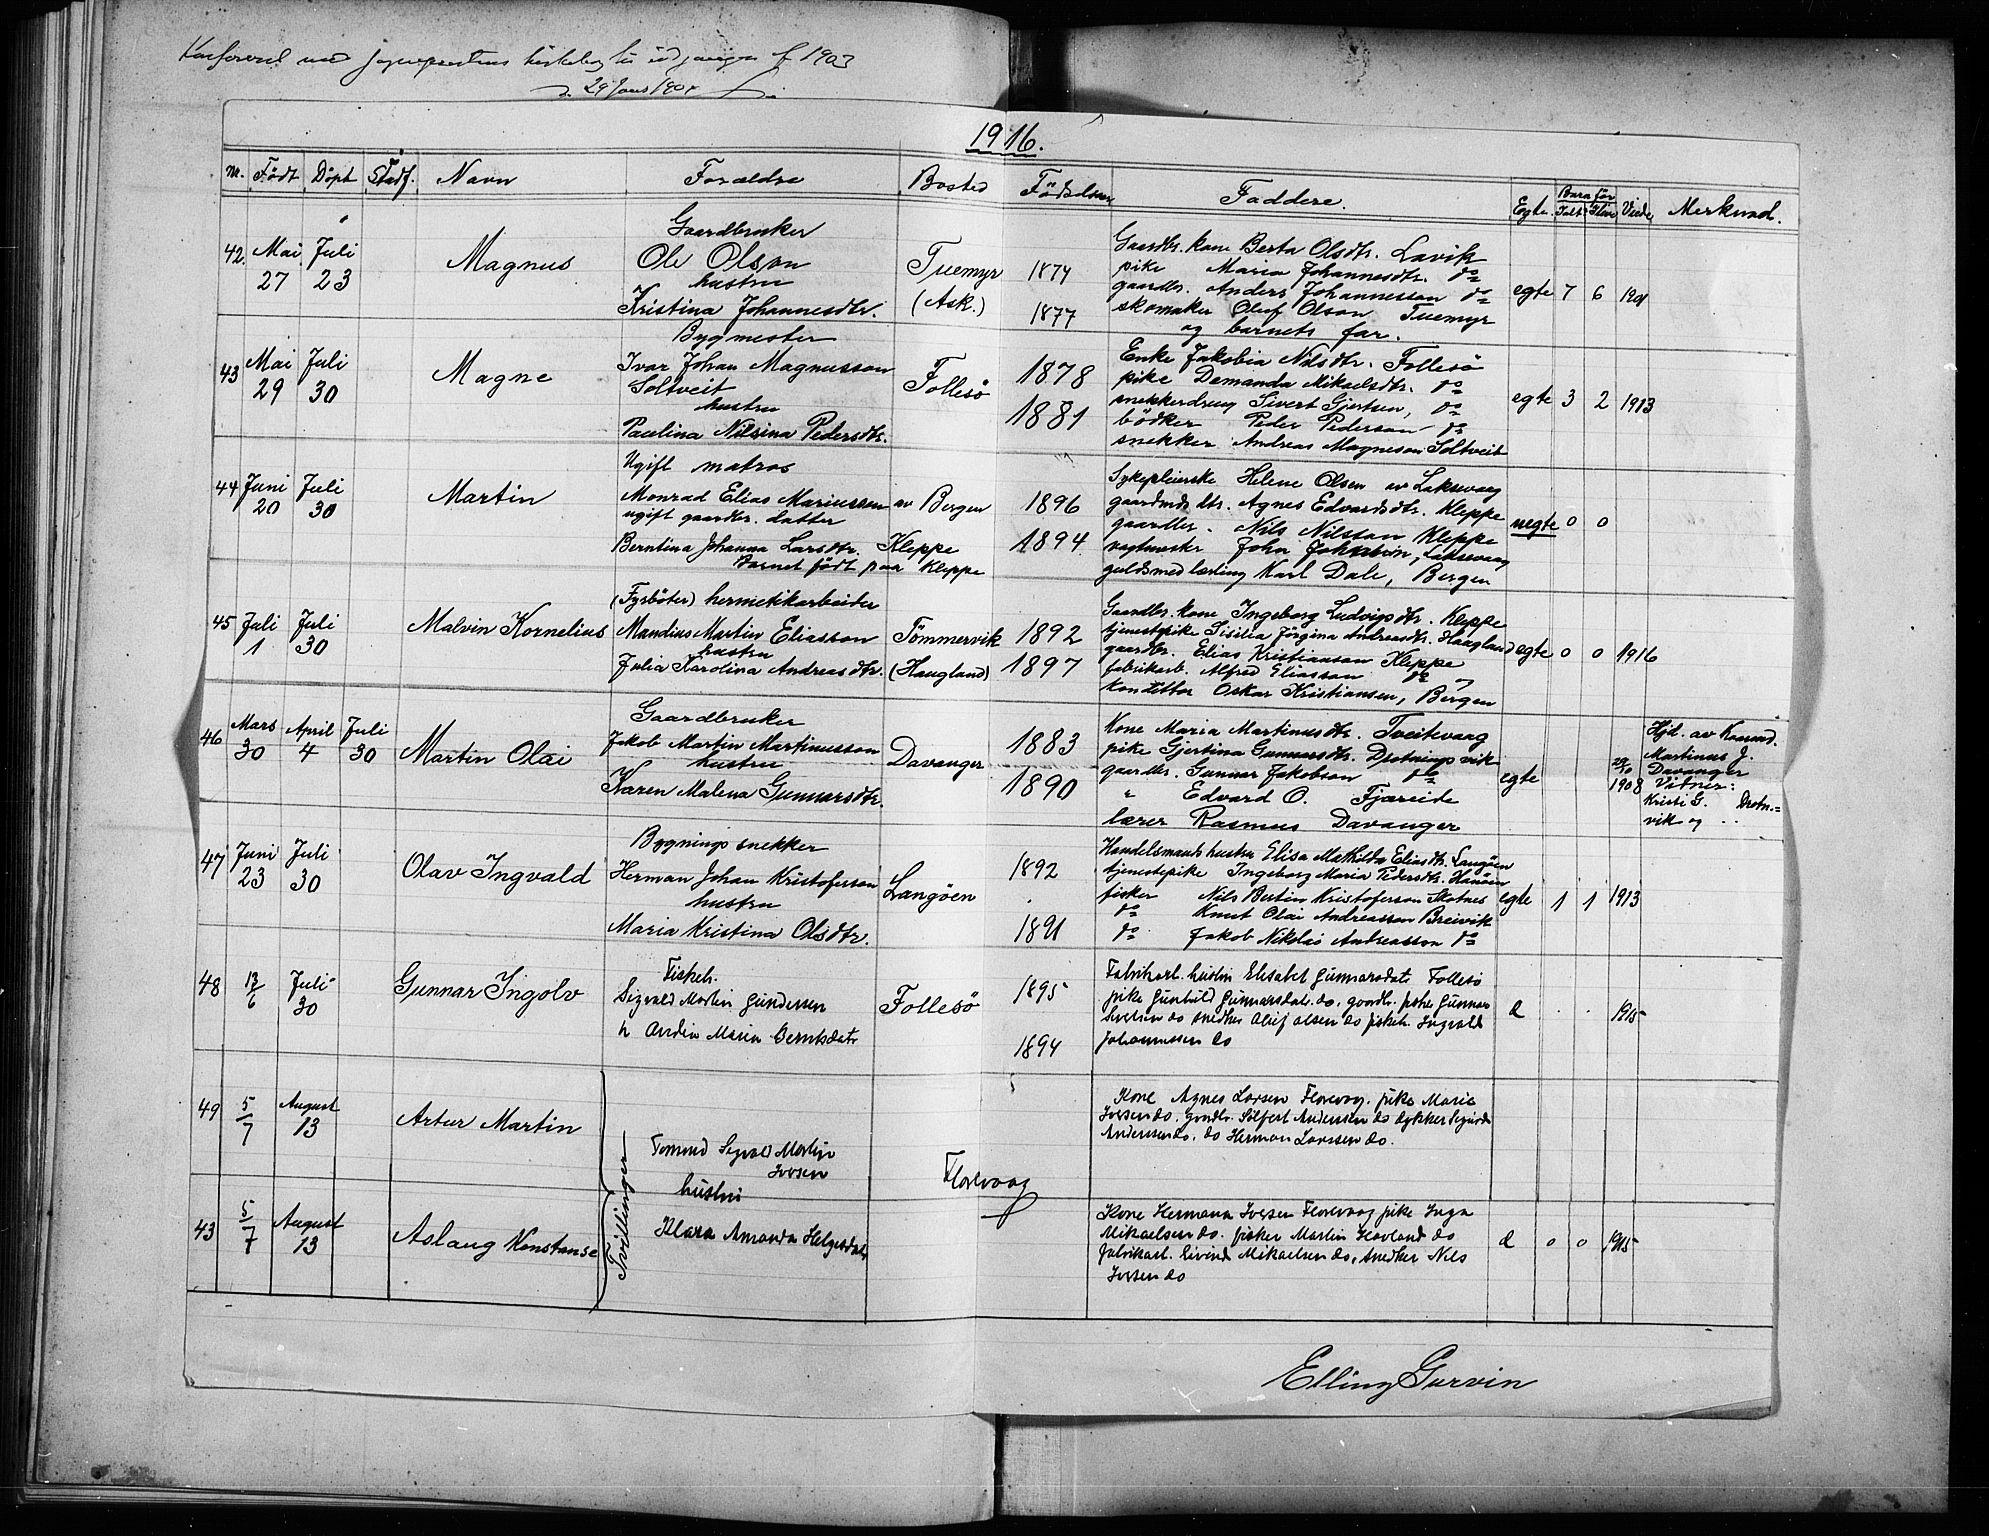 1916.
Nr. Födt Döpt Stadf. Navn Forældre Bosted Fødselsaar Faddere. Egte Barn før Født Ilive Viede Merknad.
42. Mai 27 Juli 23 Magnus
Gaardbruker
Ole Olson
hustru
Kristina Johannesdtr.
Tuemyr
(Ask.)
1874
1877
Gaardbr. kone Berta Olsdtr. Lavik
pike Maria Johannesdtr. do
gaardbr. Anders Johannesson do
skomaker Oluf Olson Tuemyr
og barnets far.
egte 7 6 1901
43 Mai 29 Juli 30 Magne
Bygmester
Ivar Johan Magnusson
Soltveit
hustru
Paulina Nilsina Pedersdtr.
Follesö
1878
1881
Enke Jakobia Nilsdtr. Follesö
pike Demanda Mikaelsdtr. do
snekkerdreng Sivert Gjertsen, do
bödker Peder Pederson do
snekker Andreas Magneson Soltveit
egte 3 2 1913
44 Juni 20 Juli 30 Martin
Ugift matros
Monrad Elias Mariussen
ugift gaardbr. datter
Berntina Johanna Larsdtr.
Barnet födt paa Kleppe
av Bergen
Kleppe
1896
1894.
Sykepleierske Helene Olsen av Laksevaag
gaardmds dtr. Agnes Edvardsdtr. Kleppe
gaardbr. Nils Nilsson Kleppe
vagtmester John Johnson, Laksevaag
guldsmedlærling Karl Dale, Bergen
uegte 0 0
45 Juli 1 Juli 30 Malvin Kornelius
(Fyrböter) hermetikarbeider
Mandius Martin Eliasson
hustru
Julia Karolina Andreasdtr.
Tömmervik
(Haugland)
1892
1897
Gaardbr. kone Ingeborg Ludvigsdtr. Kleppe
tjenestepike Sisilia Jörgina Andreasdtr. Haugland
gaardbr. Elias Kristianson Kleppe
fabrikarb. Alfred Eliasson do
konditor Oskar Kristiansen, Bergen
egte 0 0 1916
46 Mars 30 April 4 Juli 30 Martin Olai
Gaardbruker
Jakob Martin Martinusson
hustru
Karen Malena Gunnarsdtr.
Davanger
1883
1890
Kone Maria Martinusdtr. Tveitevaag
pike Gjertina Gunnarsdtr. Drotningsvik
gaardbr. Gunnar Jakobson do
" Edvard O. Fjæreide
lærer Rasmus Davanger
egte
1908
Hjd. av Konrad
Martinus J.
Davanger
Vitner:
Kristi G. Drotn.=
vik og
47 Juni 23 Juli 30 Olav Ingvald
Bygnings snekker
Herman Johan Kristoferson
hustru
Maria Kristina Olsdtr.
Langöen
1892
1891
Handelsmands hustru Elisa Mathilda Eliasdtr. Langöen
tjenestepike Ingeborg Maria Pedersdtr. Hanöen
fisker Nils Bertin Kristoferson Skotnes
do Knut Olai Andreasson Breivik
do Jakob Nikolai Andreasson do
egte 1 1 1913
48 Juli 30 Gunnar Ingolv
Fisker.
Sigvald Martin Gundersen
h Andin Maria Berntsdatr
Follesö
1895
1894
Fabrikarb. hustru Elisabet Gunnarsdatr Follesö
pike Gunhild Gunnarsdatr. do. gaardbr. Gunnar
Sivertsen do snedker Oluf Olsen do fisker. Ingvald
Johannessen do
e 1915
49 5/7 August 13 Artur Martin
Tvillinger
Sigvald Martin
Iversen
hustru
Klara Amanda Helgesdatr
Florvaag
Kone Agnes Larsen Florevaag. pike Marie
Iversen do. gaardbr. Sigfert Andersen do dykker Sigurd
Andersen do. do Herman Larssen do.
43 5/7 August 13 Aslaug Konstanse
Kone Hermana Iversen Florevaag pike Inga
Mikaelsen do. fisker Martin Hovland do
fabrikarb. Eivind Mikaelsen do, snedker Nils
Iversen do
e 0 0 1915
Elling Gurvin